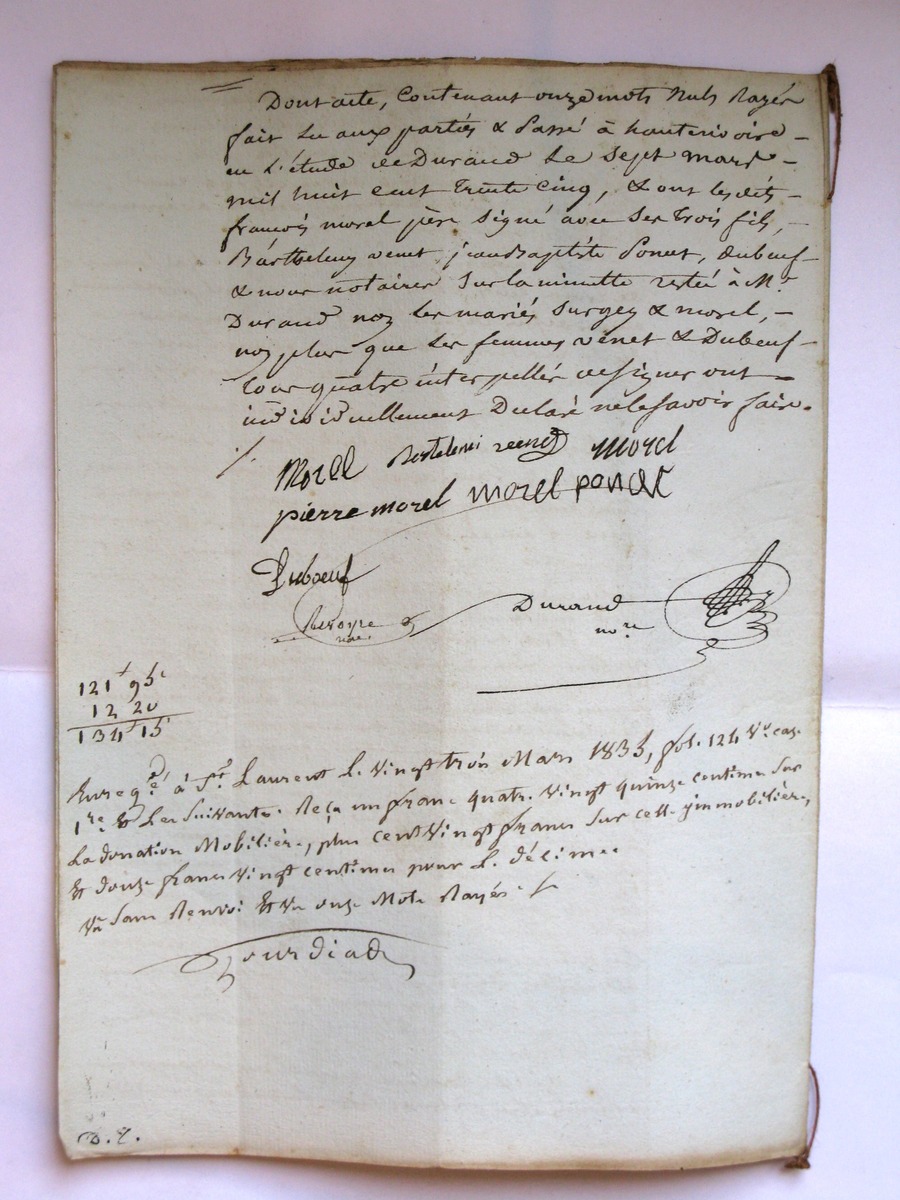 Dont acte, Contenant onze mots Nuls Rayés
fait Lu aux parties & Passé à hauterivoire –
en L'étude de Durand Le Sept mars –
mil huit cent Trente Cinq, & ont lesdits –
francois morel père signé avec Ses Trois fils, –
Barthelemy venet, jean Baptiste Poncet, Dubeuf –
& nous notaires Sur la minutte restée à Me.
Durand non Les mariés Surgey & morel, –
non plus que Les femmes venet & Dubeuf –
Tous quatre interpellés de signer ont –
individuellement Déclaré ne le Savoir faire.
Morel Bertelemi venet morel
pierre morel morel poncet
Duboeuf
Durand
nre
121f 95c
12 20
134f 15c
Enregé. à St. Laurent Le Vingt trois Mars 1835, fol. 124 Vo. case
1re & Les Suivantes. Reçu un franc quatre Vingt quinze centimes Sur
La donation Mobilière, plus cent Vingt francs Sur celle immobilière,
& douze francs Vingt centimes pour Le décime.
Vu Sans Renvoi & Vu onze Mots Rayés.